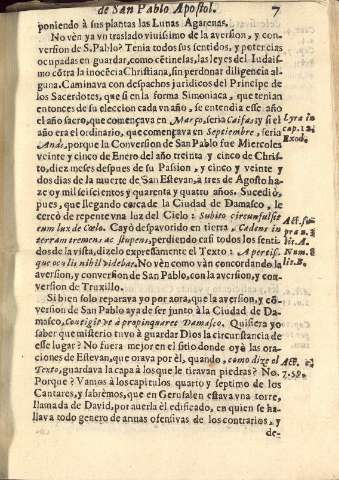 de San Pablo Apostol. 7
poniendo à sus plantas las Lunas Agarenas.
No vèn ya vn traslado viuissimo de la auersion, y con-
version de S. Pablo? Tenia todos sus sentidos, y potencias
ocupadas en guardar, como cẽtinelas, las leyes del Iudais-
mo cõtra la inocẽcia Christiana, sin perdonar diligencia al-
guna. Caminava con despachos juridicos del Principe de
los Sacerdotes, que si en la forma Simoniaca, que tenian
entonces de su eleccion cada vn año, se entendia esse año
el año sacro, que començava en Março, seria Caifas; y si el
año era el ordinario, que començava en Septiembre, seria
Anàs, porque la Conversion de San Pablo fue Miercoles
veinte y cinco de Enero del año treinta y cinco de Chris-
to, diez meses despues de su Passion, y cinco y veinte y
dos dias de la muerte de San Estevan, à tres de Agosto ha-
ze oy mil seiscientos y quarenta y quatro años. Sucediò,
pues, que llegando cerca de la Ciudad de Damasco, le
cercò de repente vna luz del Cielo: Subito circunfulsit
eum lux de Cœlo. Cayò despavorido en tierra, Cadens in
terram tremens ac stupens, perdiendo casi todos los senti-
dos de la vista, dizelo expressamente el Texto: Apertis-
que oculis nihil videbat. No vèn como vàn concordando la
aversion, y conversion de San Pablo, con la aversion, y con-
version de Truxillo.
Si bien solo reparava yo por aora, que la aversion, y cõ-
version de San Pablo aya de ser junto à la Ciudad de Da-
masco, Contigit vt appropinquaret Damasco. Quisiera yo
saber que misterio tuvo à guardar Dios la circunstancia de
esse lugar? No fuera mejor en el sitio donde oyò las ora-
ciones de Estevan, que orava por èl, quando, como dize el
Texto, guardava la capa à los que le tiravan piedras? No.
Porque? Vamos à los capitulos quarto y septimo de los
Cantares, y sabrèmos, que en Gerusalen estava vna torre,
llamada de David, por auerla èl edificado, en quien se ha-
llava todo genero de armas ofensivas de los contrarios, y
de-
Lyra in
cap. 12.
Exod.
Act. su-
pra n. 3.
lit. A.
Num. 8
lit. B.
Act.
7. 59.